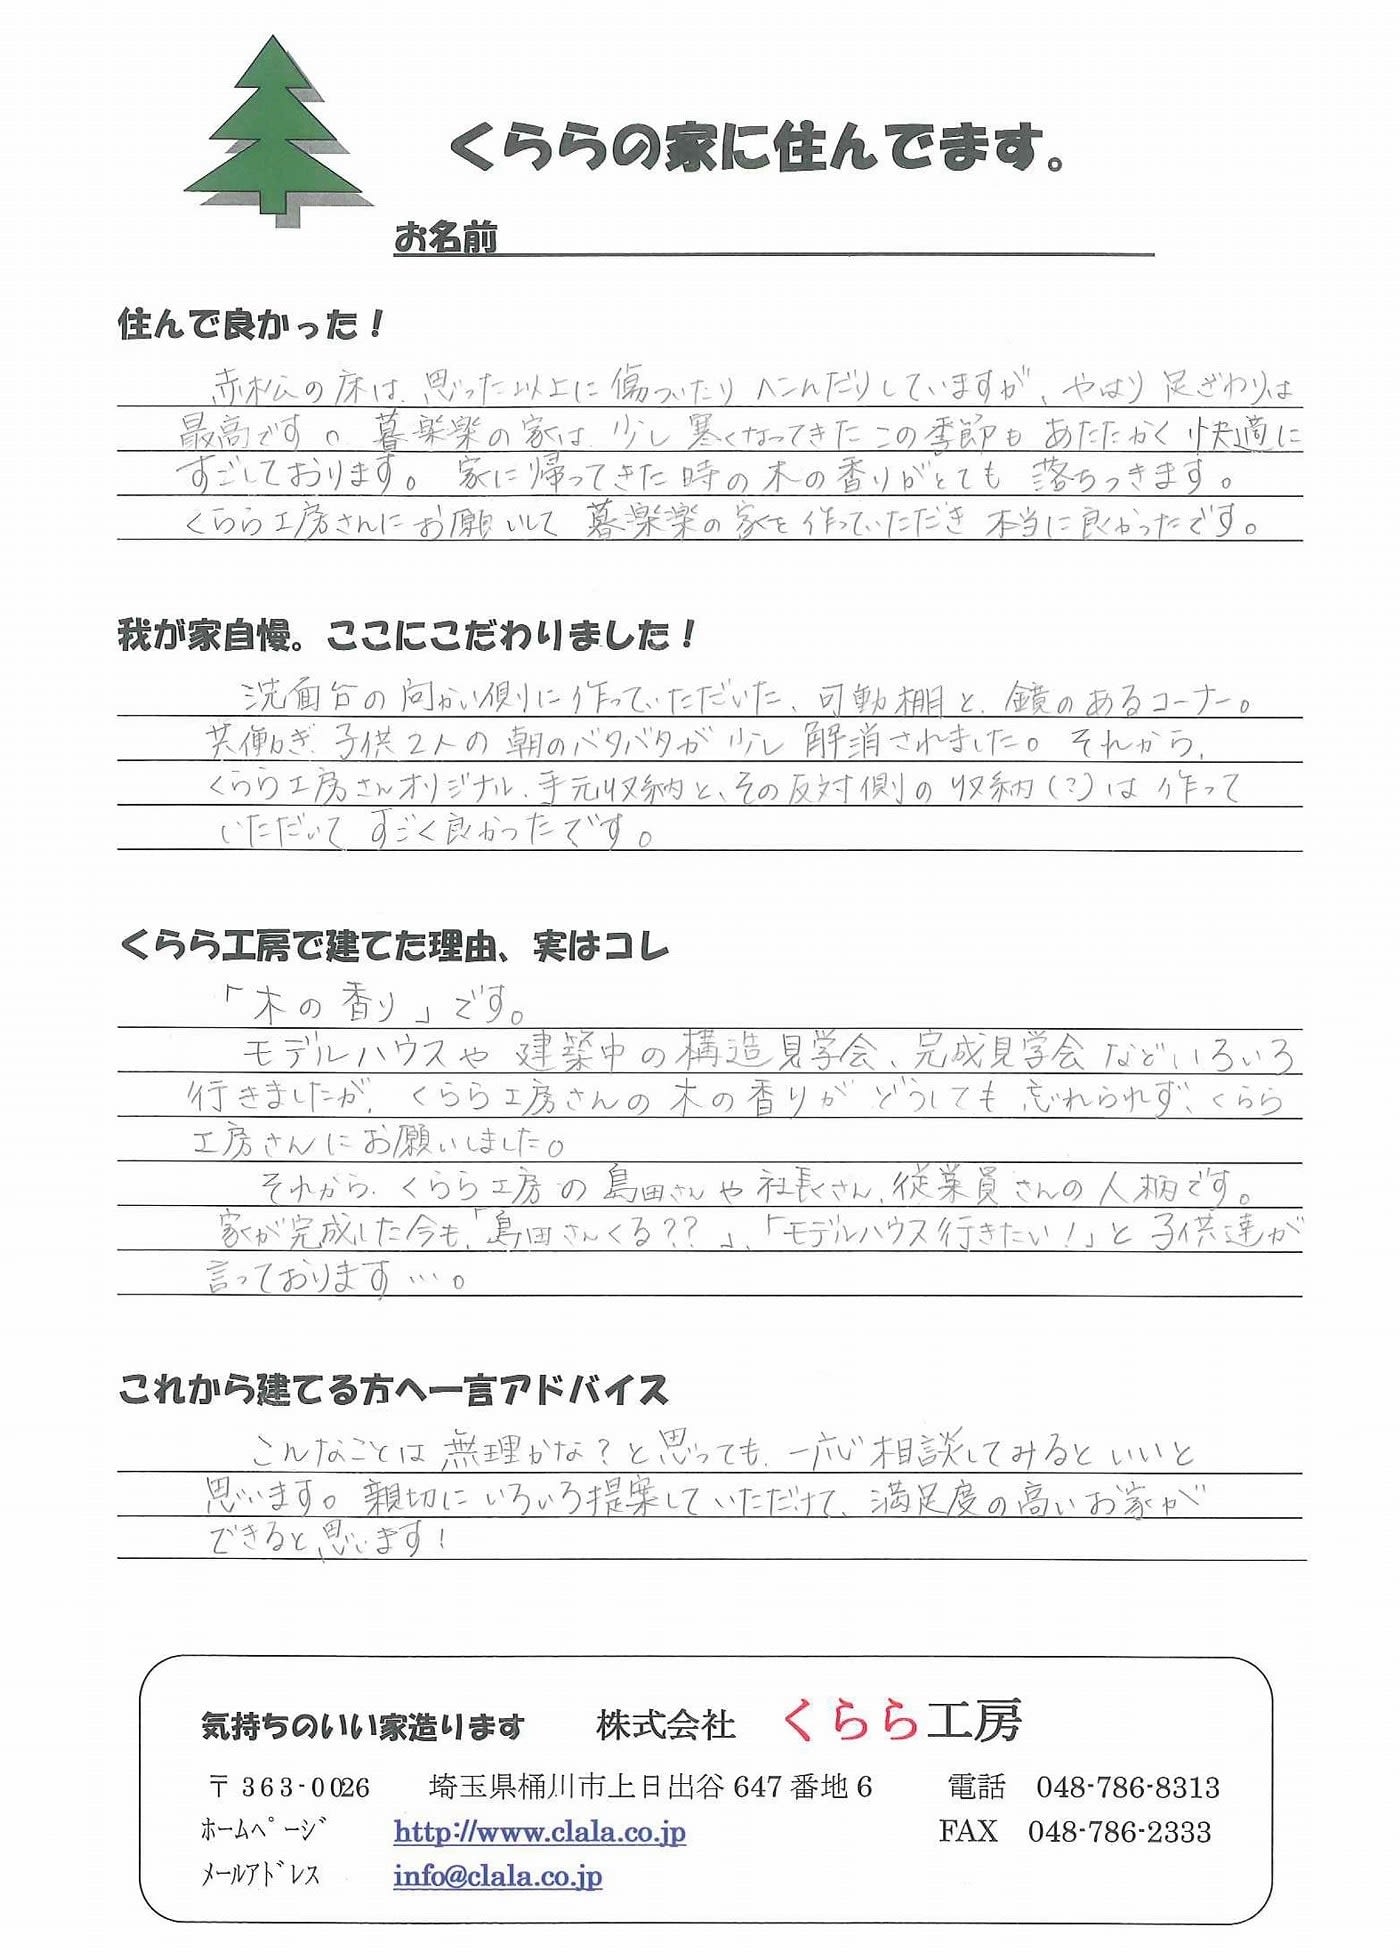 くららの家に住んでます。
お名前
住んで良かった！
赤松の床は、思った以上に傷ついたりヘこんだりしていますが、やはり足ざわりは
最高です。暮楽楽の家は、少し寒くなってきたこの季節もあたたかく快適に
すごしております。家に帰ってきた時の木の香りがとても落ちつきます。
くらら工房さんにお願いして暮楽楽の家を作っていただき本当に良かったです。
我が家自慢。ここにこだわりました！
洗面台の向かい側に作っていただいた、可動棚と、鏡のあるコーナー。
共働き、子供2人の朝のバタバタが少し解消されました。それから、
くらら工房さんオリジナル、手元収納と、その反対側の収納(?)は作って
いただいてすごく良かったです。
くらら工房で建てた理由、実はコレ
「木の香り」です。
モデルハウスや建築中の構造見学会、完成見学会などいろいろ
行きましたが、くらら工房さんの木の香りがどうしても忘れられず、くらら
工房さんにお願いしました。
それから、くらら工房の島田さんや社長さん、従業員さんの人柄です。
家が完成した今も、「島田さんくる??」、「モデルハウス行きたい！」と子供達が
言っております…。
これから建てる方へ一言アドバイス
こんなことは無理かな？と思っても、一応相談してみるといいと
思います。親切にいろいろ提案していただけて、満足度の高いお家が
できると思います！
気持ちのいい家造ります 株式会社 くらら工房
〒363-0026 埼玉県桶川市上日出谷647番地6 電話 048-786-8313
ﾎｰﾑﾍﾟｰｼﾞ http://www.clala.co.jp FAX 048-786-2333
ﾒｰﾙｱﾄﾞﾚｽ info@clala.co.jp